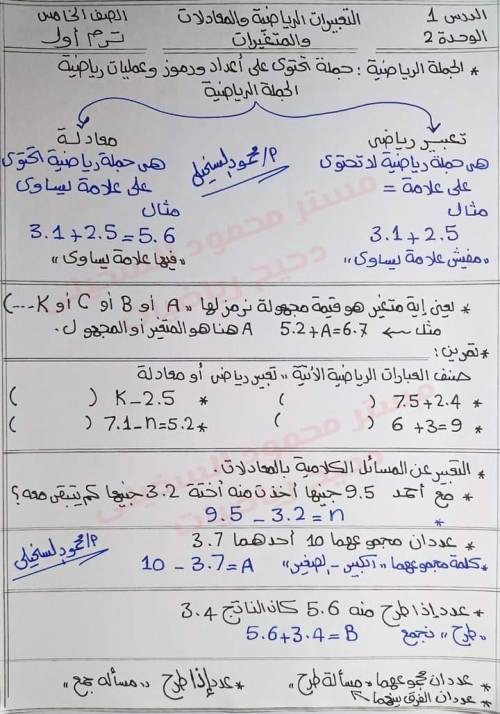 الدرس 1
الوحدة 2
التعبيرات الرياضية والمعادلات
والمتغيرات
الصف الخامس
ترم أول
* الجملة الرياضية : جملة تحتوى على أعداد ورموز وعمليات رياضية
الجملة الرياضية
تعبير رياضى
هى جملة رياضية لا تحتوى
على علامة =
مثال
3.1 + 2.5
"مفيش علامة يساوى"
معادلة
هى جملة رياضية تحتوى
على علامة يساوى
مثال
3.1 + 2.5 = 5.6
"فيها علامة يساوى"
* يعنى إية متغير هو قيمة مجهولة نرمز لها "A أو B أو C أو K ...)
مثل ← 5.2 + A = 6.7 A هنا هو المتغير أو المجهول.
* تمرين :
صنف العبارات الرياضية الآتية "تعبير رياضى أو معادلة
* 7.5 + 2.4 ( ) * K – 2.5 ( )
* 6 + 3 = 9 ( ) * 7.1 – n = 5.2 ( )
* التعبير عن المسائل الكلامية بالمعادلات.
* مع أحمد 9.5 جنيها أخذت منه أختة 3.2 جنيها كم يتبقى معه ؟
* 9.5 – 3.2 = n
* عددان مجموعهما 10 أحدهما 3.7
* كلمة مجموعهما "الكبير – الصغير" 10 – 3.7 = A
* عدد إذا طرح منه 5.6 كان الناتج 3.4
"طرح" نجمع 5.6 + 3.4 = B
* عددان مجموعهما "مسألة طرح" * عدد إذا طرح "مسألة جمع"
* عددان الفرق بينهما
مستر محمود
مستر محمود